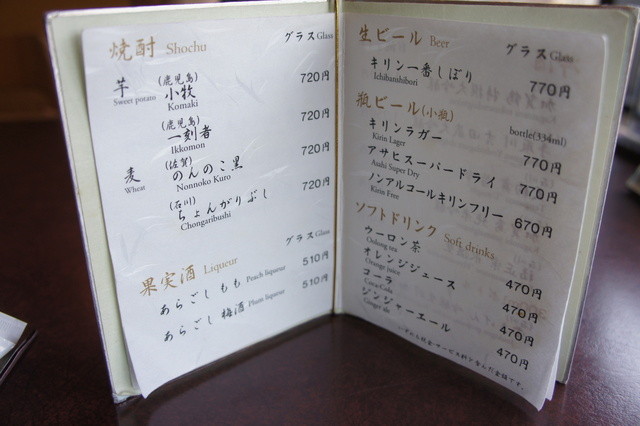 焼酎 Shochu グラス Glass
芋 (鹿児島)
小牧 720円
Sweet potato Komaki
(鹿児島)
一刻者 720円
Ikkomon
麦 (佐賀)
のんのこ黒 720円
Wheat Nonnoko Kuro
(石川)
ちょんがりぶし 720円
Chongaribushi
グラス Glass
果実酒 Liqueur
あらごし もも Peach liqueur 510円
あらごし 梅酒 Plum liqueur 510円
生ビール Beer グラス Glass
キリン一番しぼり 770円
Ichibanshibori
瓶ビール(小瓶) bottle(334ml)
キリンラガー 770円
Kirin Lager
アサヒスーパードライ 770円
Asahi Super Dry
ノンアルコールキリンフリー 670円
Kirin Free
ソフトドリンク Soft drinks
ウーロン茶 470円
Oulong tea
オレンジジュース 470円
Orange juice
コーラ 470円
Coca-Cola
ジンジャーエール 470円
Ginger ale
いずれも税金・サービス料を含んだ金額です。